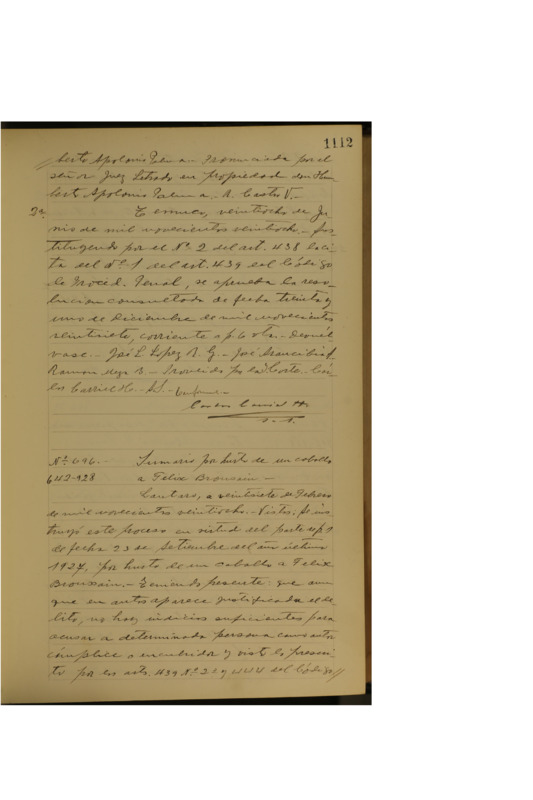 1112
//berto Apolonio Palma.- Pronunciada por el
señor Juez Letrado en propiedad don Hum
berto Apolonio Palma. R. Castro V.-
2a. Temuco, veintiocho de Ju-
nio de mil novecientos veintiocho.- Sus-
tituyendo por el Nº 2 del art. 438 la ci-
ta del Nº 1 del art. 439 del Código
de Proced. Penal, se aprueba la reso-
lucion consultada de fecha treinta y
uno de diciembre de mil novecientos
veintisiete, corriente a f. 6 vta.- Devuél-
vase.- José L. Lopez R. G.- José Arancibia
Ramon .- Proveido por la Corte.- Cár-
los
Nº 696.- Sumario por hurto de un caballo
642-928 a Felix Broussain.-
Lautaro, a veintisiete de Febrero
de mil novecientos veintiocho.- Vistos: Se ins-
truyó este proceso en virtud del parte de f. 1
de fecha 23 de Setiembre del año último
1927, por hurto de un caballo a Felix
Broussain.- Teniendo presente: que aun
que en autos aparece justificado el de-
lito, no hay indicios suficientes para
acusar a determinada persona como autor
cómplice o encubridor y visto lo prescri-
to por los arts. 439 Nº 2 y 444 del Código//